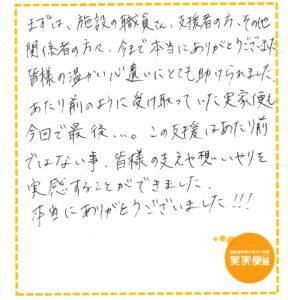 まずは、施設の職員さん、支援者の方、その他
関係者の方々、今まで本当にありがとうございました
皆様の温かい心遣いにとても助けられました
あたり前のように受け取っていた実家便も
今回で最後…。この支援はあたり前
ではない事、皆様の支えや想いやりを
実感することができました。
本当にありがとうございました!!!
実家便